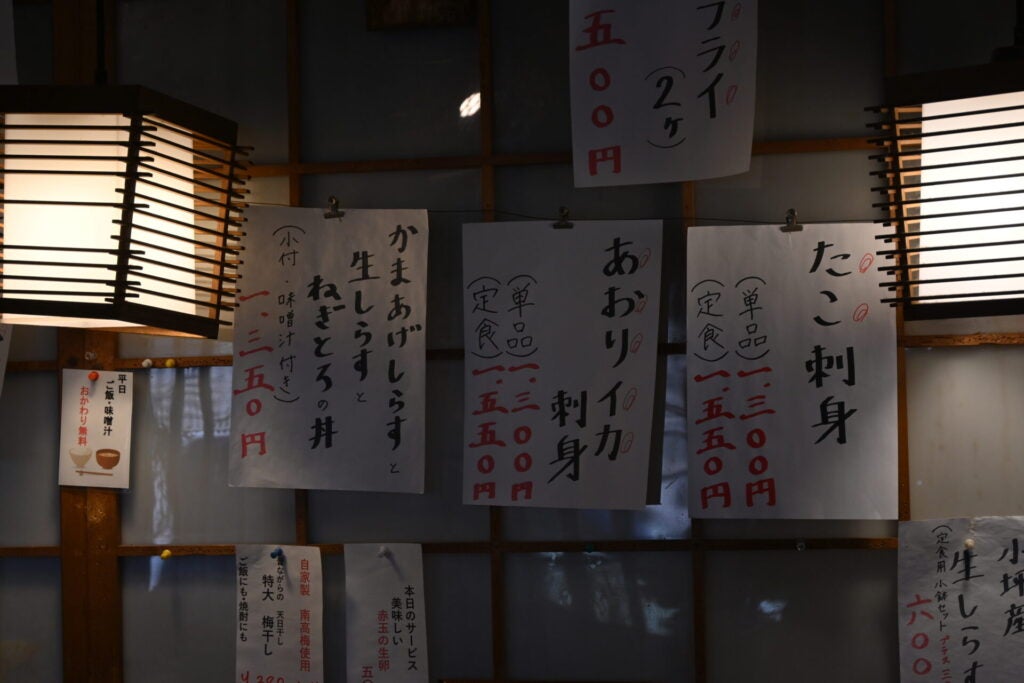 フライ
(2ヶ)
五〇〇円
たこ刺身
(単品)一、三〇〇円
(定食)一、五五〇円
あおりイカ
刺身
(単品)一、三〇〇円
(定食)一、五五〇円
かまあげしらすと
生しらすと
ねぎとろの丼
(小付・味噌汁付き)
一、三五〇円
平日
ご飯・味噌汁
おかわり無料
小坪産
生しらす
(定食用 小鉢セット
六〇〇
本日のサービス
美味しい
赤玉の生卵
五〇
自家製 南高梅使用
昔ながらの 天日干し
特大 梅干し
ご飯にも・焼酎にも